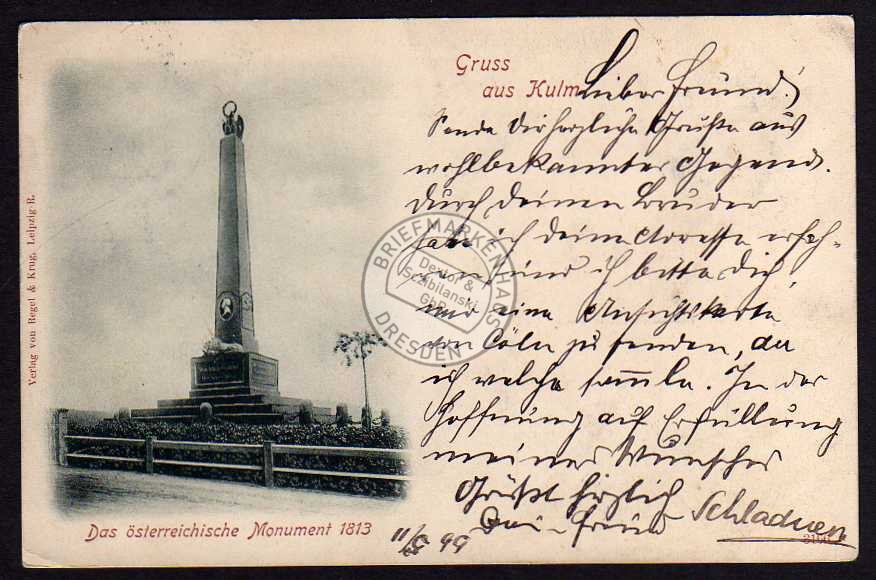 Gruss
aus Kulm
Lieber Freund!
Sende Dir herzliche Grüße aus
wohlbekannter Gegend.
Durch Deinen Bruder
habe ich deine Adresse erfah-
ren und ich bitte Dich,
mir eine Ansichtskarte
von Cöln zu senden, da
ich welche sammle. In der
Hoffnung auf Erfüllung
meines Wunsches
Grüßt herzlich
Dein Freund
Das österreichische Monument 1813
Verlag von Regel & Krug, Leipzig-R.
BRIEFMARKENHAUS
Dextor &
Sczibilanski
GbR
DRESDEN